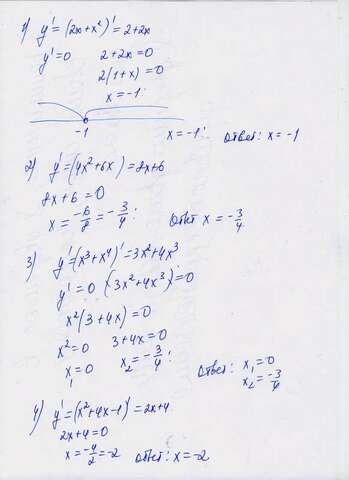 1) y' = (2x + x²)' = 2 + 2x
y' = 0 2 + 2x = 0
2(1 + x) = 0
x = -1
-1 x = -1 ответ: x = -1
2) y' = (4x² + 6x) = 8x + 6
8x + 6 = 0
x = -6/8 = -3/4 ответ x = -3/4
3) y' = (x³ + x⁴)' = 3x² + 4x³
y' = 0 (3x² + 4x³) = 0
x²(3 + 4x) = 0
x² = 0 3 + 4x = 0
x₁ = 0 x₂ = -3/4
ответ: x₁ = 0
x₂ = -3/4
4) y' = (x² + 4x - 1)' = 2x + 4
2x + 4 = 0
x = -4/2 = -2 ответ: x = -2